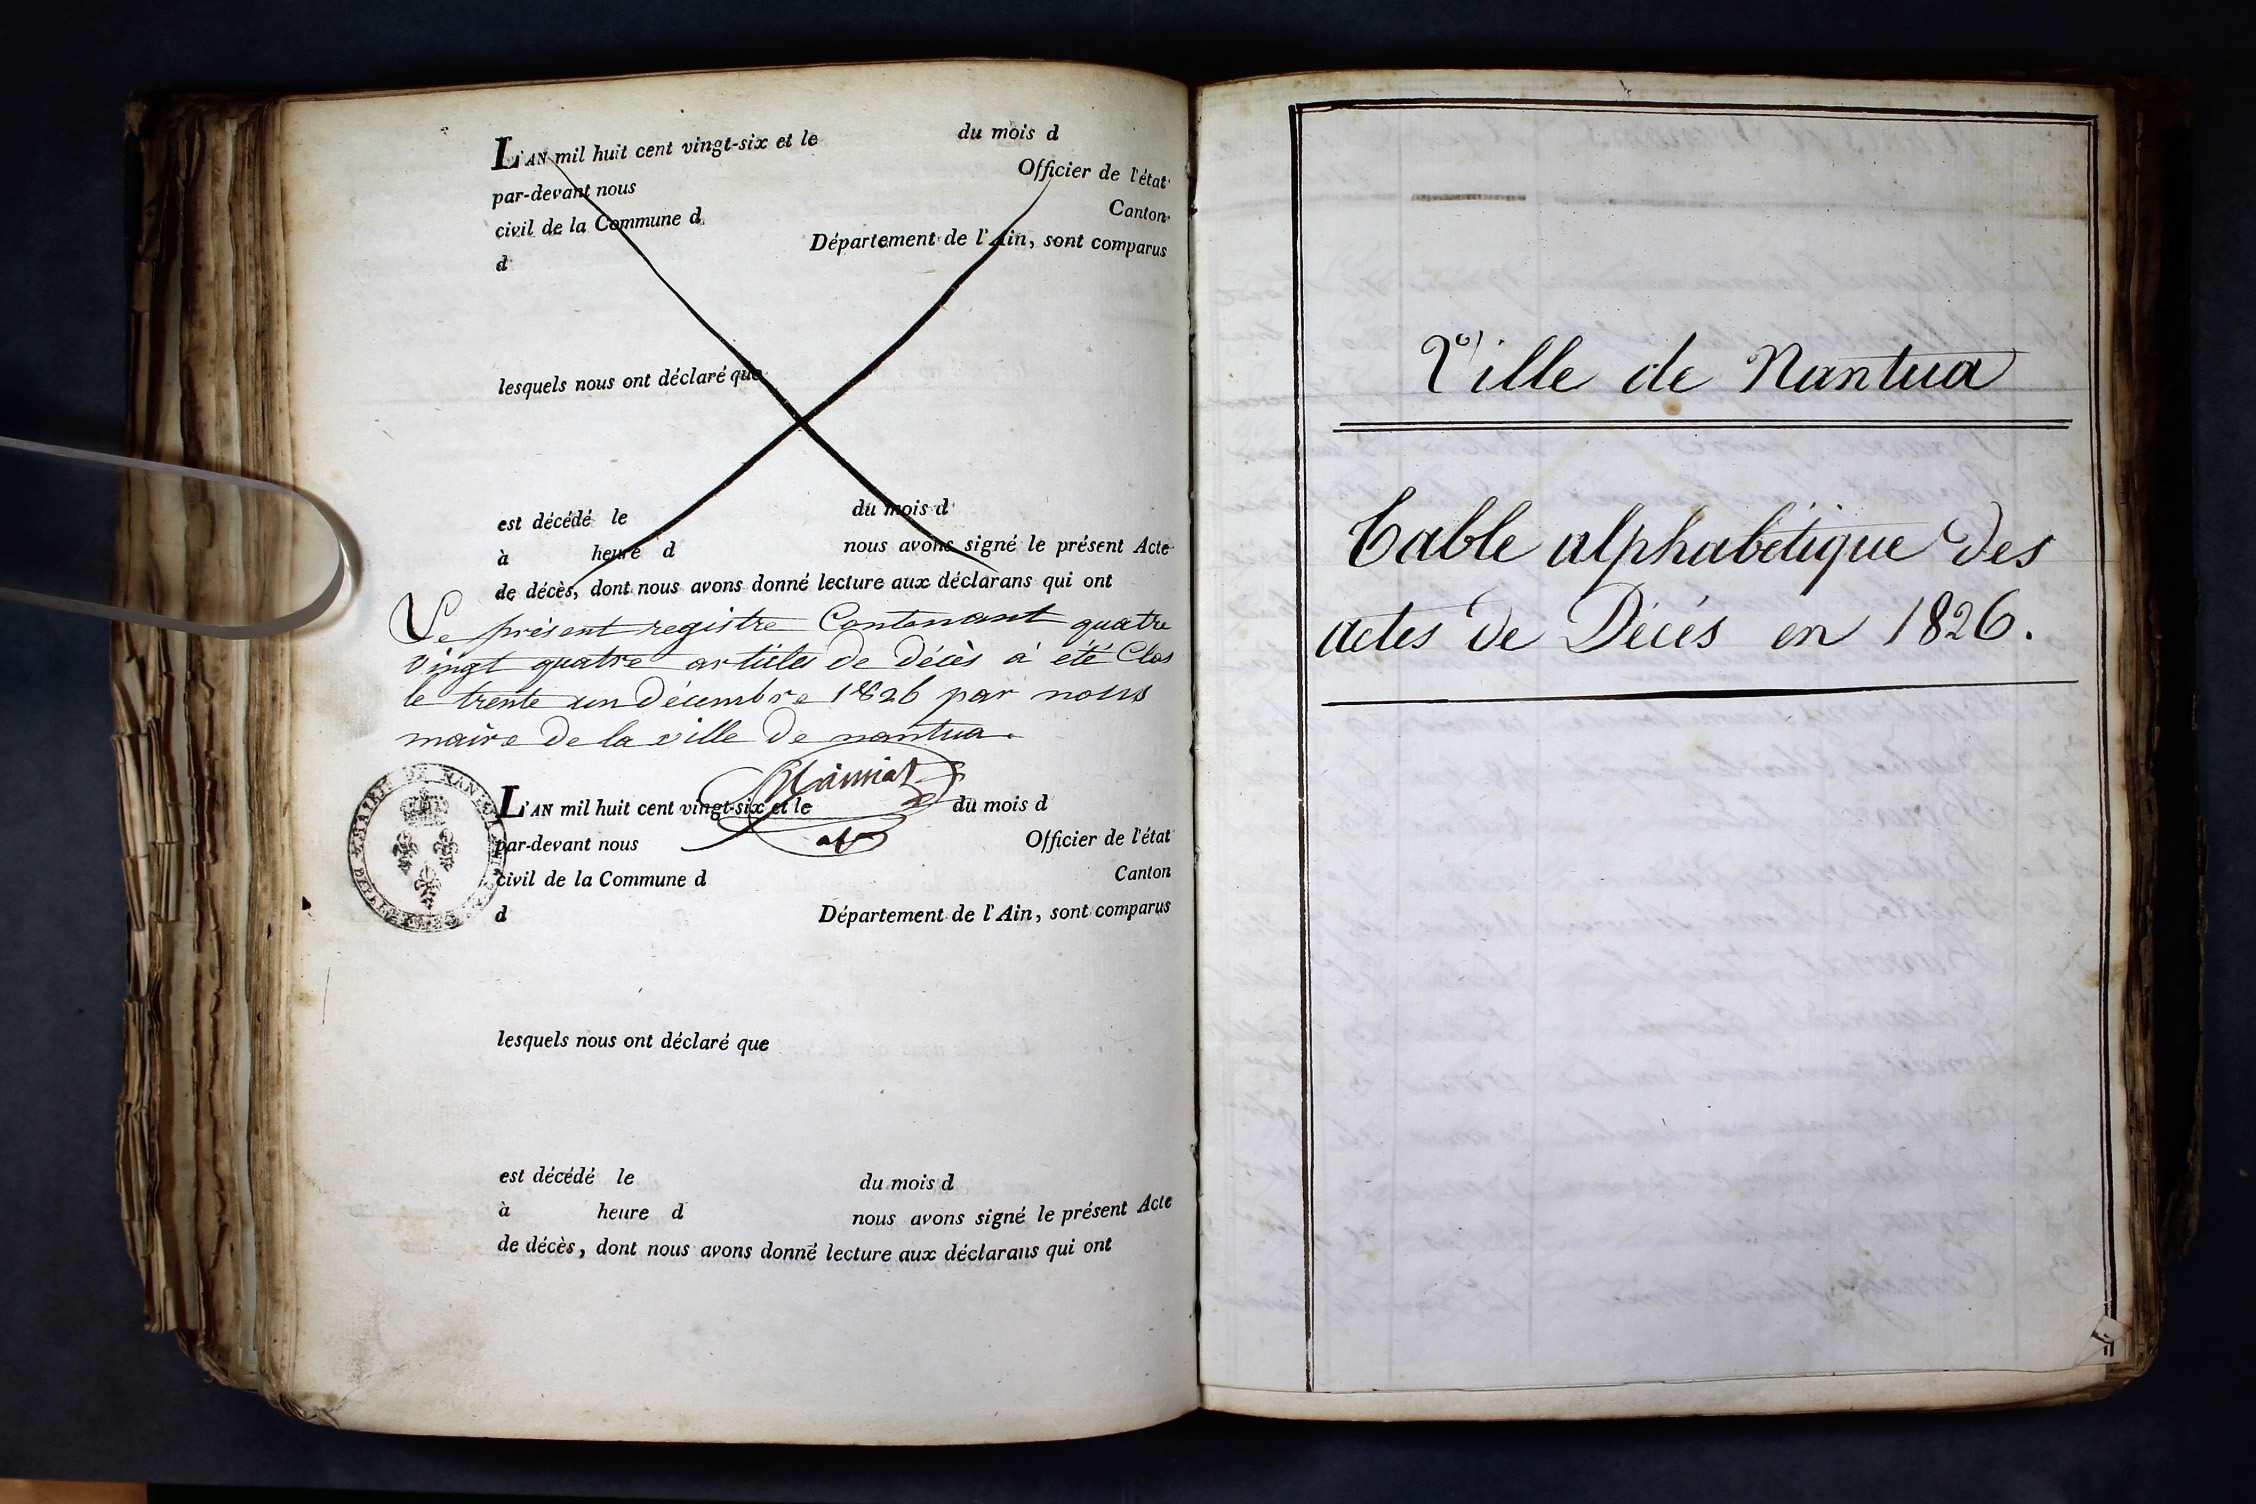 L'AN mil huit cent vingt-six et le du mois d
par-devant nous Officier de l'état
civil de la Commune d Canton
d Département de l'Ain, sont comparus
lesquels nous ont déclaré que
est décédé le du mois d
à heure d nous avons signé le présent Acte
de décès, dont nous avons donné lecture aux déclarans qui ont
Le présent registre Contenant quatre
vingt quatre articles de décès à été Clos
le trente un décembre 1826 par nous
maire de la ville de nantua.
L'AN mil huit cent vingt-six et le du mois d
par-devant nous Officier de l'état
civil de la Commune d Canton
d Département de l'Ain, sont comparus
lesquels nous ont déclaré que
est décédé le du mois d
à heure d nous avons signé le présent Acte
de décès, dont nous avons donné lecture aux déclarans qui ont
Ville de Nantua
Table alphabétique des
actes de Décès en 1826.